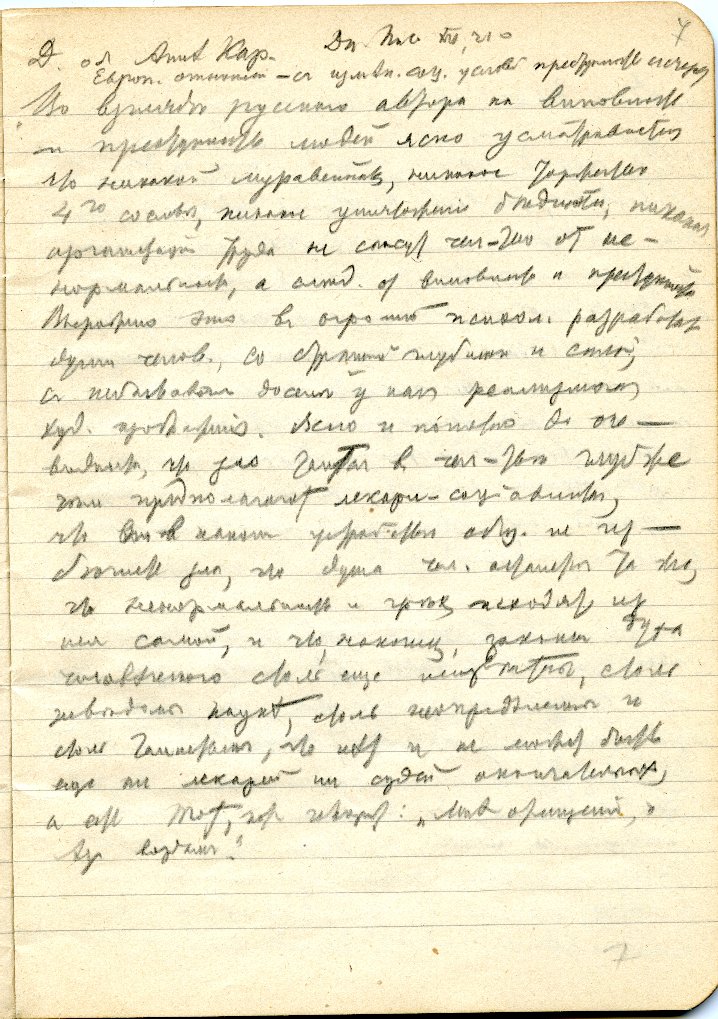 Д. об Аннѣ Кар. Дн. Пис.
Европ. – съ измѣн. соц. услов. преступность исчезн
"Во взглядѣ русского автора на виновность
и преступность людей ясно усматривается
что никакой муравейникъ, никакое торжество
4го сословья, никакое уничтоженіе бѣдности, никакая
организація труда не спасут чел–тво от не–
нормальности, а след. от виновности и преступности
Выражено это въ огромной психол. разработкѣ
души челов., со страшной глубиной и силой,
съ небывалым доселѣ у насъ реализмомъ
худ. изображенія. Ясно и понятно до оче–
видности, что зло таится в чел–твѣ глубже
чѣм предполагают лекари-социалисты,
что ни в каком устройствѣ общ. не из–
бѣгнете зла, что душа чел. останется та же,
что ненормальность и грѣхъ исходят из
нея самой, и что, наконец, законы духа
человѣческого столь еще неизвѣстны, столь
невѣдомы наукѣ, столь неопредѣленны и
столь таинственны, что нѣт и не может быть
еще ни лекарей ни судей окончательных,
а есть Тот, кот. говорит: „Мнѣ отмщеніе,
Аз воздам".
7